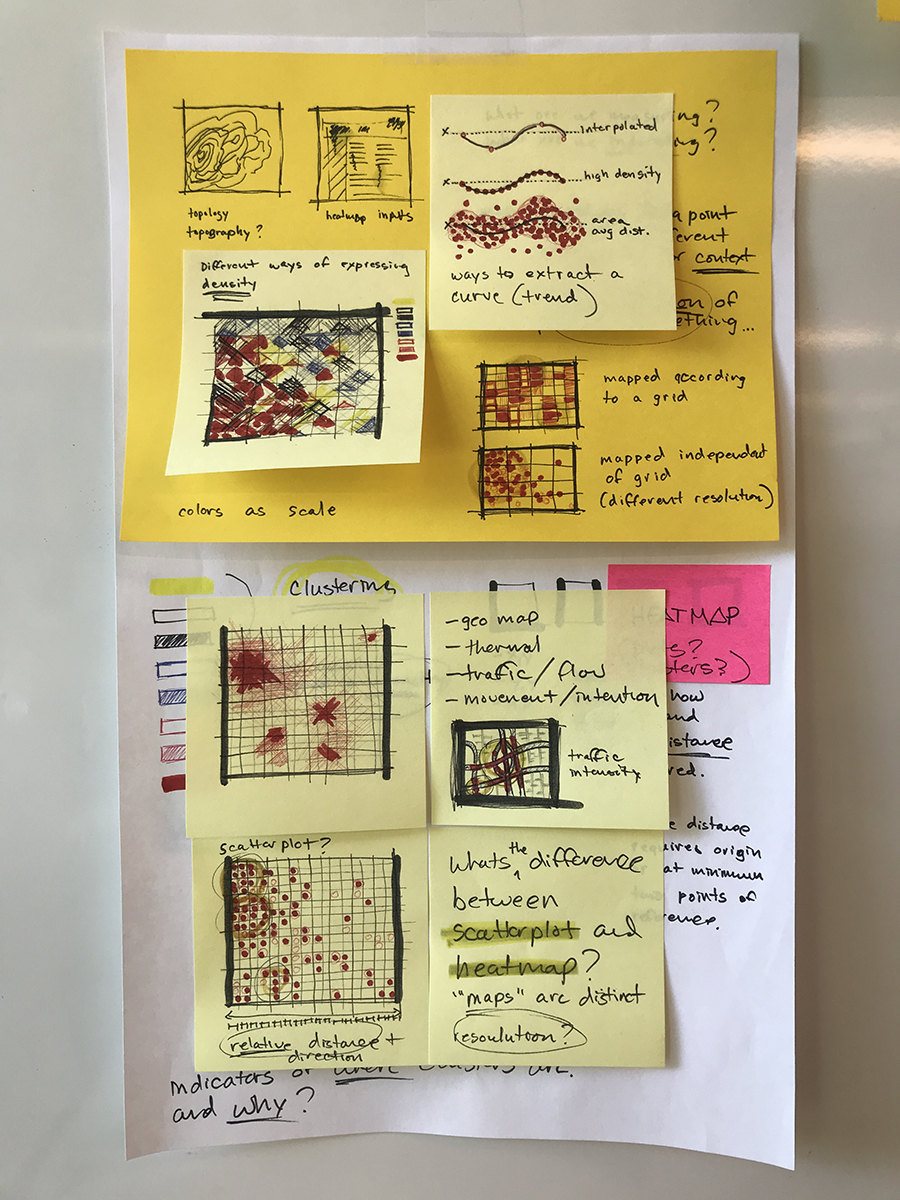 topology
topography?
heatmap inputs
interpolated
high density
area
avg dist.
ways to extract a
curve (trend)
ing?
ng?
a point
ferent
r context
on of
ething...
Different ways of expressing
density
mapped according
to a grid
mapped independant
of grid
(different resolution)
colors as scale
clustering
HEATMAP
- geo map
- thermal
- traffic / flow
- movement / intention
traffic
intensity
how
and
istance
red.
e distance
equires origin
at minimum
points of
erence.
scatterplot?
relative distance +
direction
whats the difference
between
scatterplot and
heatmap?
"maps" are distinct
resoulution?
indicators of where clusters are.
and why?